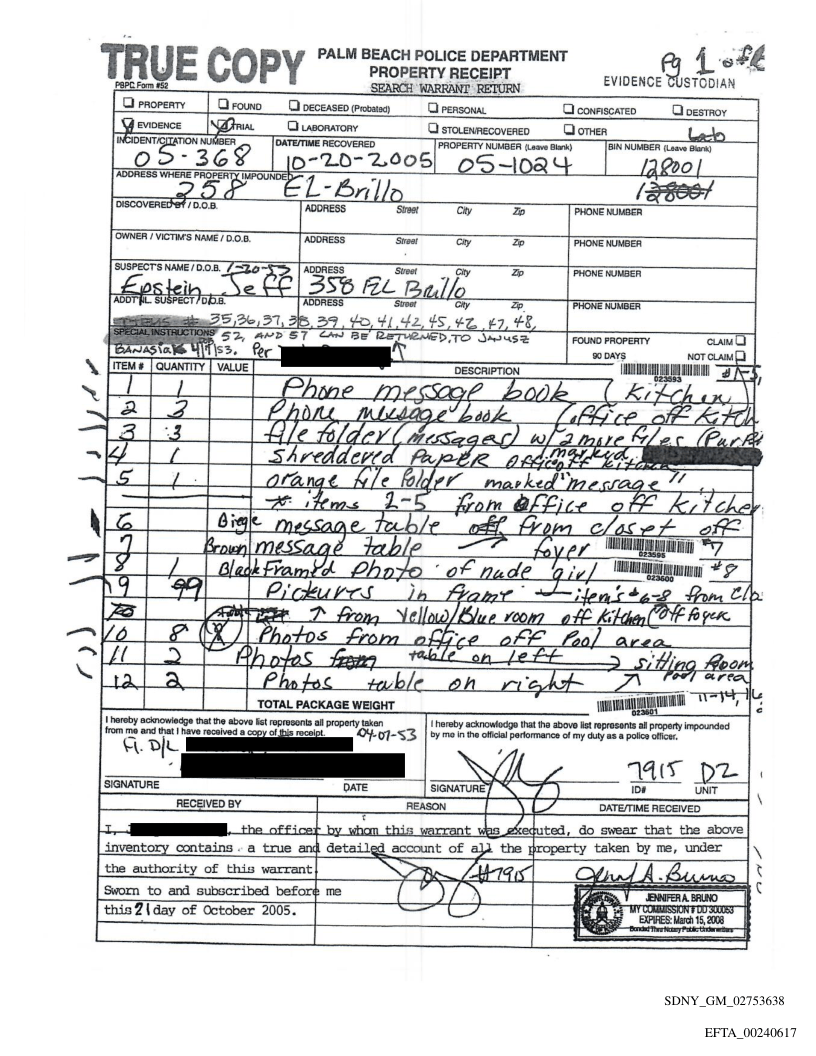 TRUE COPY
PALM BEACH POLICE DEPARTMENT
PROPERTY RECEIPT
SEARCH WARRANT RETURN
Pg 1 of
EVIDENCE CUSTODIAN
PBPD Form #52
PROPERTY FOUND DECEASED (Probated) PERSONAL CONFISCATED DESTROY
EVIDENCE TRIAL LABORATORY STOLEN/RECOVERED OTHER Lab
INCIDENT/CITATION NUMBER DATE/TIME RECOVERED PROPERTY NUMBER (Leave Blank) BIN NUMBER (Leave Blank)
05-368 10-20-2005 05-1024 128001
ADDRESS WHERE PROPERTY IMPOUNDED
358 EL-Brillo
DISCOVERED BY / D.O.B. ADDRESS Street City Zip PHONE NUMBER
OWNER / VICTIM'S NAME / D.O.B. ADDRESS Street City Zip PHONE NUMBER
SUSPECT'S NAME / D.O.B. 1-20-53 ADDRESS Street City Zip PHONE NUMBER
Epstein Jeff 358 EL Brillo
ADDT'NL SUSPECT / D.O.B. ADDRESS Street City Zip PHONE NUMBER
ITEMS # 35,36,37,38,39,40,41,42,45,46,47,48,
SPECIAL INSTRUCTIONS 52, AND 57 CAN BE RETURNED, TO JANUSZ
BANASIAK 4/7/53. Per
FOUND PROPERTY CLAIM
90 DAYS NOT CLAIM
ITEM # QUANTITY VALUE DESCRIPTION
023593
1 1 Phone message book (Kitchen)
2 3 Phone message book (office off Kitch
3 3 file folder (messages) w/ 2 more files
4 1 shreddered Paper office off kitchen marked
5 1 orange file folder marked "message"
* items 2-5 from office off Kitchen
6 Biege message table from closet off
7 Brown message table foyer #7
023595
8 1 Black Framed Photo of nude girl #8
023600
9 99 Pickures in frame item's #6-8 from
↑ from Yellow/Blue room off Kitchen off foyer
10 8 Photos from office off Pool area
11 2 Photos table on left sitting Room
12 2 Photos table on right Pool area
TOTAL PACKAGE WEIGHT
023601
11-14,
I hereby acknowledge that the above list represents all property taken
from me and that I have received a copy of this receipt.
04-07-53
Fl. D/L
I hereby acknowledge that the above list represents all property impounded
by me in the official performance of my duty as a police officer.
7915 D2
SIGNATURE DATE SIGNATURE ID# UNIT
RECEIVED BY REASON DATE/TIME RECEIVED
I, , the officer by whom this warrant was executed, do swear that the above
inventory contains a true and detailed account of all the property taken by me, under
the authority of this warrant
#7915
Sworn to and subscribed before me
this 21 day of October 2005.
Jennifer A. Bruno
JENNIFER A. BRUNO
MY COMMISSION # DD 300053
EXPIRES: March 15, 2008
Bonded Thru Notary Public Underwriters
SDNY_GM_02753638
EFTA_00240617